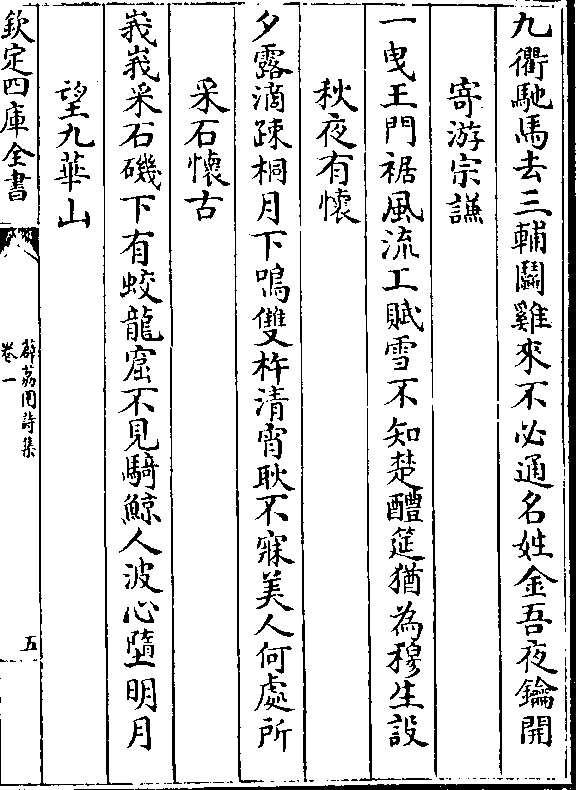 九衢馳馬去三輔鬬雞來不必通名姓金吾夜鑰開
寄游宗謙
一曵王門裾風流工賦雪不知楚醴筵猶為穆生設
秋夜有懷
夕露滴疎桐月下鳴雙杵清宵耿不寐美人何處所
采石懷古
峩峩采石磯下有蛟龍窟不見騎鯨人波心墮明月
望九華山
欽定四庫全書
薜荔園詩集
卷一
五